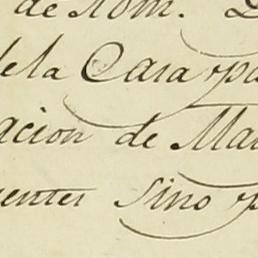 de Nom. D
de la Casa pa
acion de Ma
uentes sino p